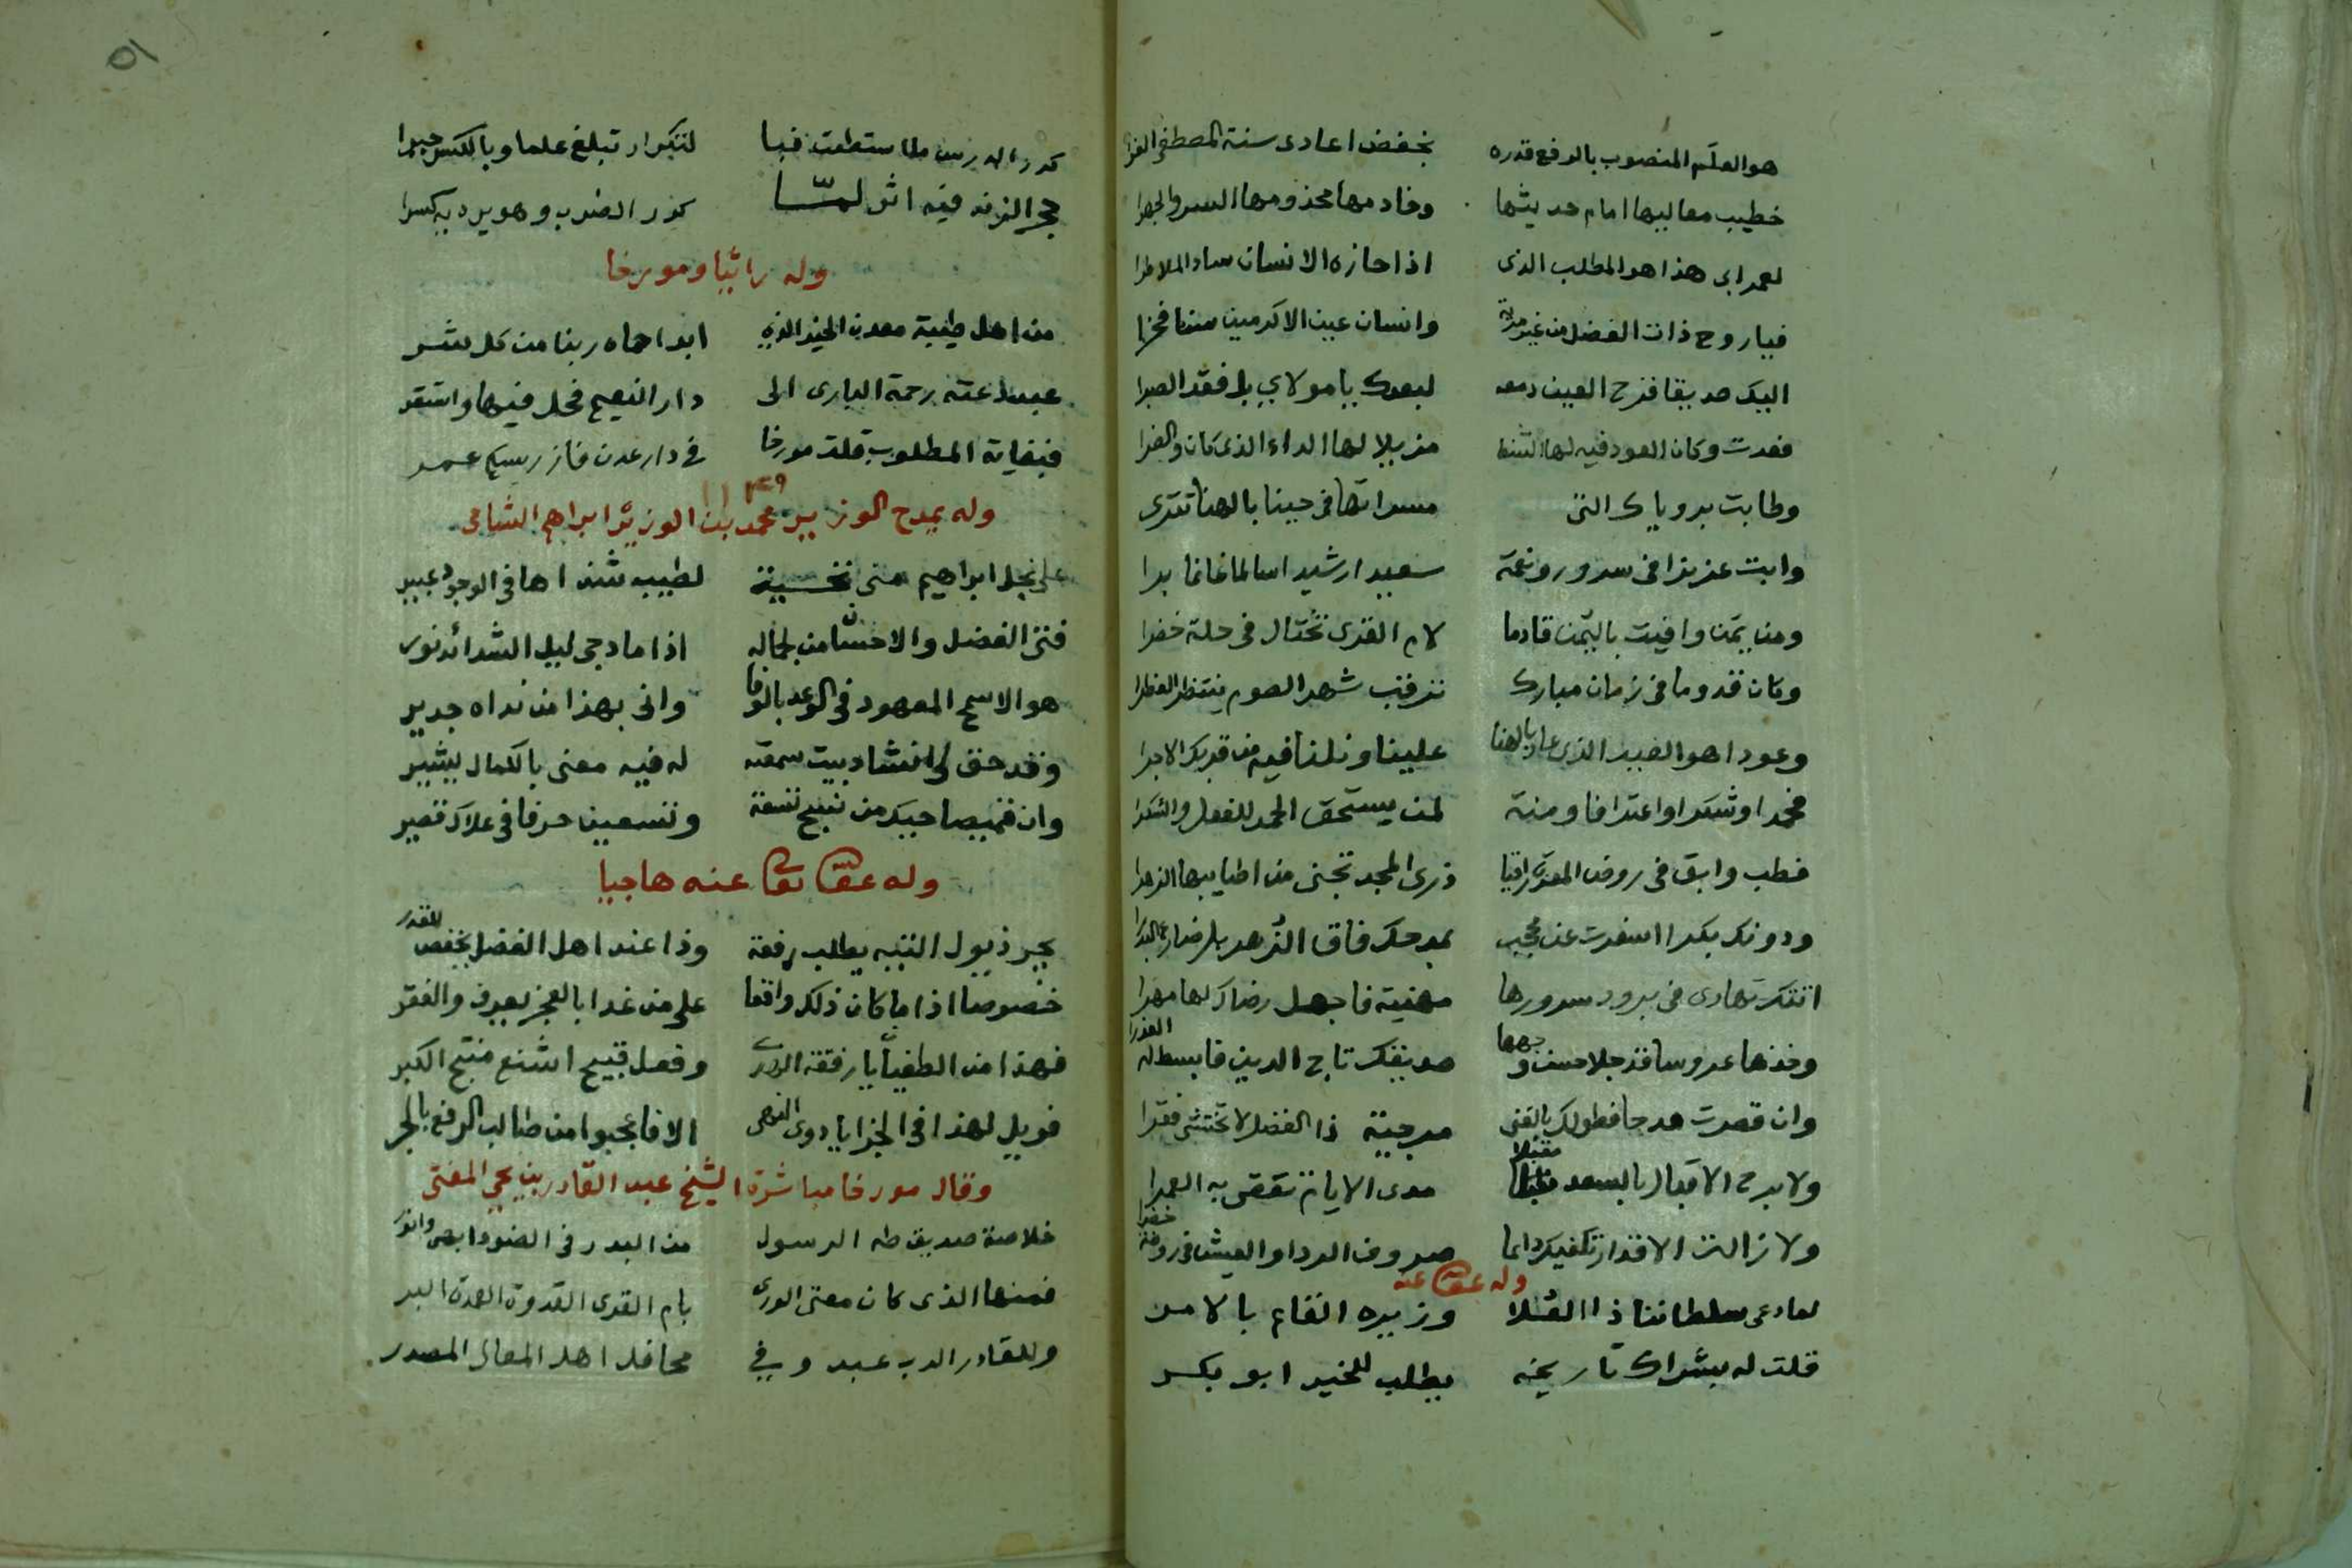 هو العلم المنصوب بالرفع قدره بخفض اعادى سنة المصطفى الغرا
خطيب معاليها امام حديثها وخادمها مخدومها السر والجهرا
لعمرابى هذا هو المطلب الذى اذا حازه الانسان ساد الملا طرا
فيا روح ذات الفضل من غير مرية وانسان عين الاكرمين سنا فخرا
اليك صديقا قرح العين دمعه لبعدك يا مولاي بل فقد الصبرا
فعدت وكان العود فيه لها الشفا مزيلا لها الداء الذى كان والضرا
وطابت بروياك التى مسراتها فى حينا بالهنا تترى
وابت عزيزا فى سرور ونعمة سعيدا رشيدا سالما غانما برا
ومن يمن وافيت باليمن قادما لام القرى تختال فى حلة خضرا
وكان قدوما فى زمان مبارك نرقب شهر الصوم ننتظر الفطرا
وعودا هو العيد الذى عاد بالهنا علينا ونلنا فيه من قربك الاجرا
فحمدا وشكرا واعترافا ومنة لمن يستحق الحمد للفعل والشكرا
فطب وابق فى روض المعزة راقيا ذرى المجد تجنى من اطايبها الزهرا
ودونك بكرا اسفرت عن محجب بمدحك فاق الزهر بل ضارع البدرا
اتتك تهادى فى برود سرورها مهنية فاجعل رضاك لها مهرا
وخذها عروسا قد جلا حسن وجهها صديقك تاج الدين فابسط له العذرا
وان قصرت مدحا فطولك بالغنى مرجية ذا الفضل لا تختشى فقرا
ولا برح الاقبال بالسعد مقبلا مدى الايام تقضى به العمرا
ولا زالت الاقدار تكفيك دائما صروف الردا والعيش فى روضة خضرا
وله عفى الله عنه
لما دعى سلطاننا ذا العلا وزيره القام بالامر
قلت له بشراك تاريخه يطلب للخير ابو بكر
٥١
كرر الدرس ما استطعت فبا لتكرار تبلغ علما وبالكسر جبرا
حجر الزند فيه اثر لما كرر الضرب وهو يرد به كسرا
وله راثيا ومورخا
من اهل طيبة معدن الخير الذي ابدا حماه ربنا من كل شر
عبد دعته رحمة البارى الى دار النعيم فحل فيها واستقر
فبغاية المطلوب قلت مورخا فى دار عدن فاز ريس عمر
١١٤٩
وله يمدح الوزير محمد بن الوزير ابراهيم الشامى
على نجل ابراهيم منى تحية لطيب شذاها فى الوجود عبير
فتى الفضل والاحسان من لجماله اذا ما دجى ليل الشدائد نور
هو الاسمح المعهود فى الوعد بالوفا وانى بهذا من نداه جدير
وقد حق لى انشاد بيت سمعته له فيه معنى بالكمال يشير
وان قميصا حيك من نسج تسعة وتسعين حرفا فى علاك قصير
وله عفى الله تعالى عنه هاجيا
يجر ذيول التيه يطلب رفعة وذا عند اهل الفضل يخفض للقدر
خصوصا اذا ما كان ذلك واقعا على من غدا بالعجز يعرف والفقر
فهذا من الطغيان يا رفقة الورى وفعل قبيح اشنع منتج الكبر
فويل لهذا فى الخزايا ذوى النهى الا فاعجبوا من طالب الرفع بالجر
وقال مورخا مباشرة الشيخ عبد القادر بن يحيى المفتى
خلاصة صديق طه الرسول من البدر فى الضوء ابهى وانور
فمنها الذى كان مفتى الورى بام القرى القدوة العمدة البر
وللقادر الرب عبد وفي محافل اهل المعالى المصدر